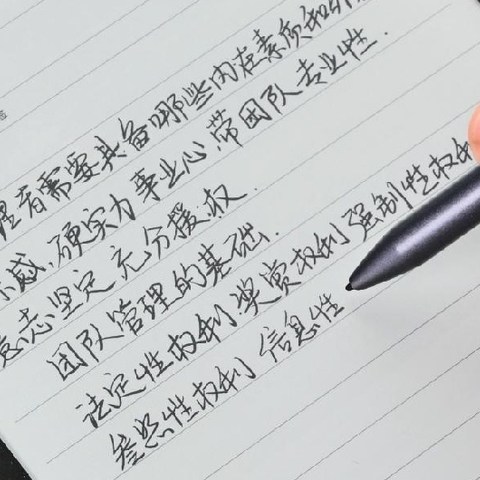 理者需要具备哪些内在素质和
感.硬实力事业心.带团队专业性.
意志坚定 充分授权.
团队管理的基础.
法定性权利 奖赏权利 强制性权利
参照性权利 信息性